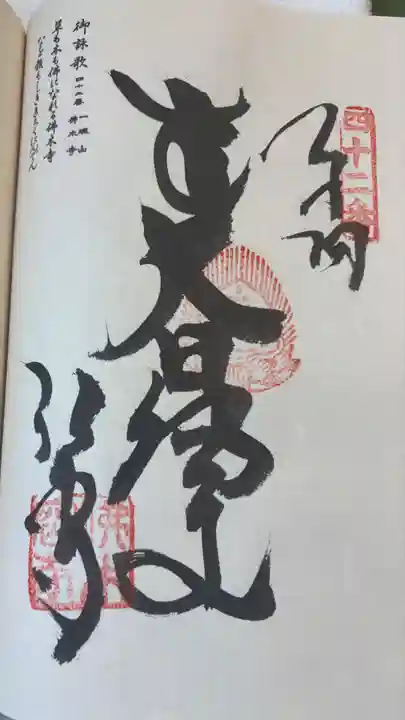 四十二番
奉納
大日如来
佛木寺
御詠歌 四十二番 一𤩍山 佛木寺
草も木も佛になれる佛木寺
なを頼もしききちくにんてん